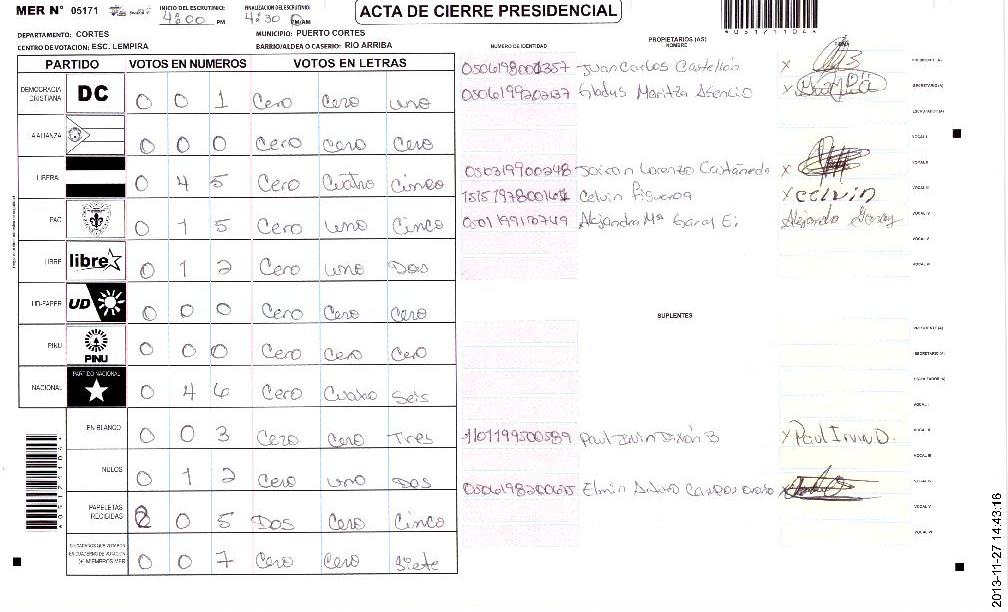 MER Nº 05171
INICIO DEL ESCRUTINIO: 4:00 PM
FINALIZACION DEL ESCRUTINIO: 4:30 PM/AM
ACTA DE CIERRE PRESIDENCIAL
DEPARTAMENTO: CORTES
MUNICIPIO: PUERTO CORTES
CENTRO DE VOTACION: ESC. LEMPIRA
BARRIO/ALDEA O CASERIO: RIO ARRIBA
PARTIDO VOTOS EN NUMEROS VOTOS EN LETRAS
DEMOCRACIA CRISTIANA DC 0 0 1 Cero Cero uno
ALIANZA 0 0 0 Cero Cero Cero
LIBERAL 0 4 5 Cero Cuatro Cinco
PAC 0 1 5 Cero uno Cinco
LIBRE libre 0 1 2 Cero uno Dos
UD-FAPER UD 0 0 0 Cero Cero Cero
PINU PINU 0 0 0 Cero Cero Cero
NACIONAL PARTIDO NACIONAL 0 4 6 Cero Cuatro Seis
EN BLANCO 0 0 3 Cero Cero Tres
NULOS 0 1 2 Cero uno Dos
PAPELETAS RECIBIDAS 2 0 5 Dos Cero Cinco
CIUDADANOS QUE VOTARON EN CUADERNO DE VOTACION (+) MIEMBROS MER 0 0 7 Cero Cero Siete
NUMERO DE IDENTIDAD
PROPIETARIOS (AS)
NOMBRE
FIRMA
Juan Carlos Castellón X PRESIDENTE (A)
Gladys Maritza Asencio X SECRETARIO (A)
ESCRUTADOR (A)
VOCAL I
0503199700248 Lorenzo Castañeda X VOCAL II
Celvin Figueroa X celvin VOCAL III
Alejandra Mª Garay E. Alejandra Garay VOCAL IV
VOCAL V
VOCAL VI
SUPLENTES
PRESIDENTE (A)
SECRETARIO (A)
ESCRUTADOR (A)
VOCAL I
1101199500589 Paul Irvin B X Paul Irvin D. VOCAL II
VOCAL III
Elmin Arturo Campos VOCAL IV
VOCAL V
VOCAL VI
2013-11-27 14:43:16